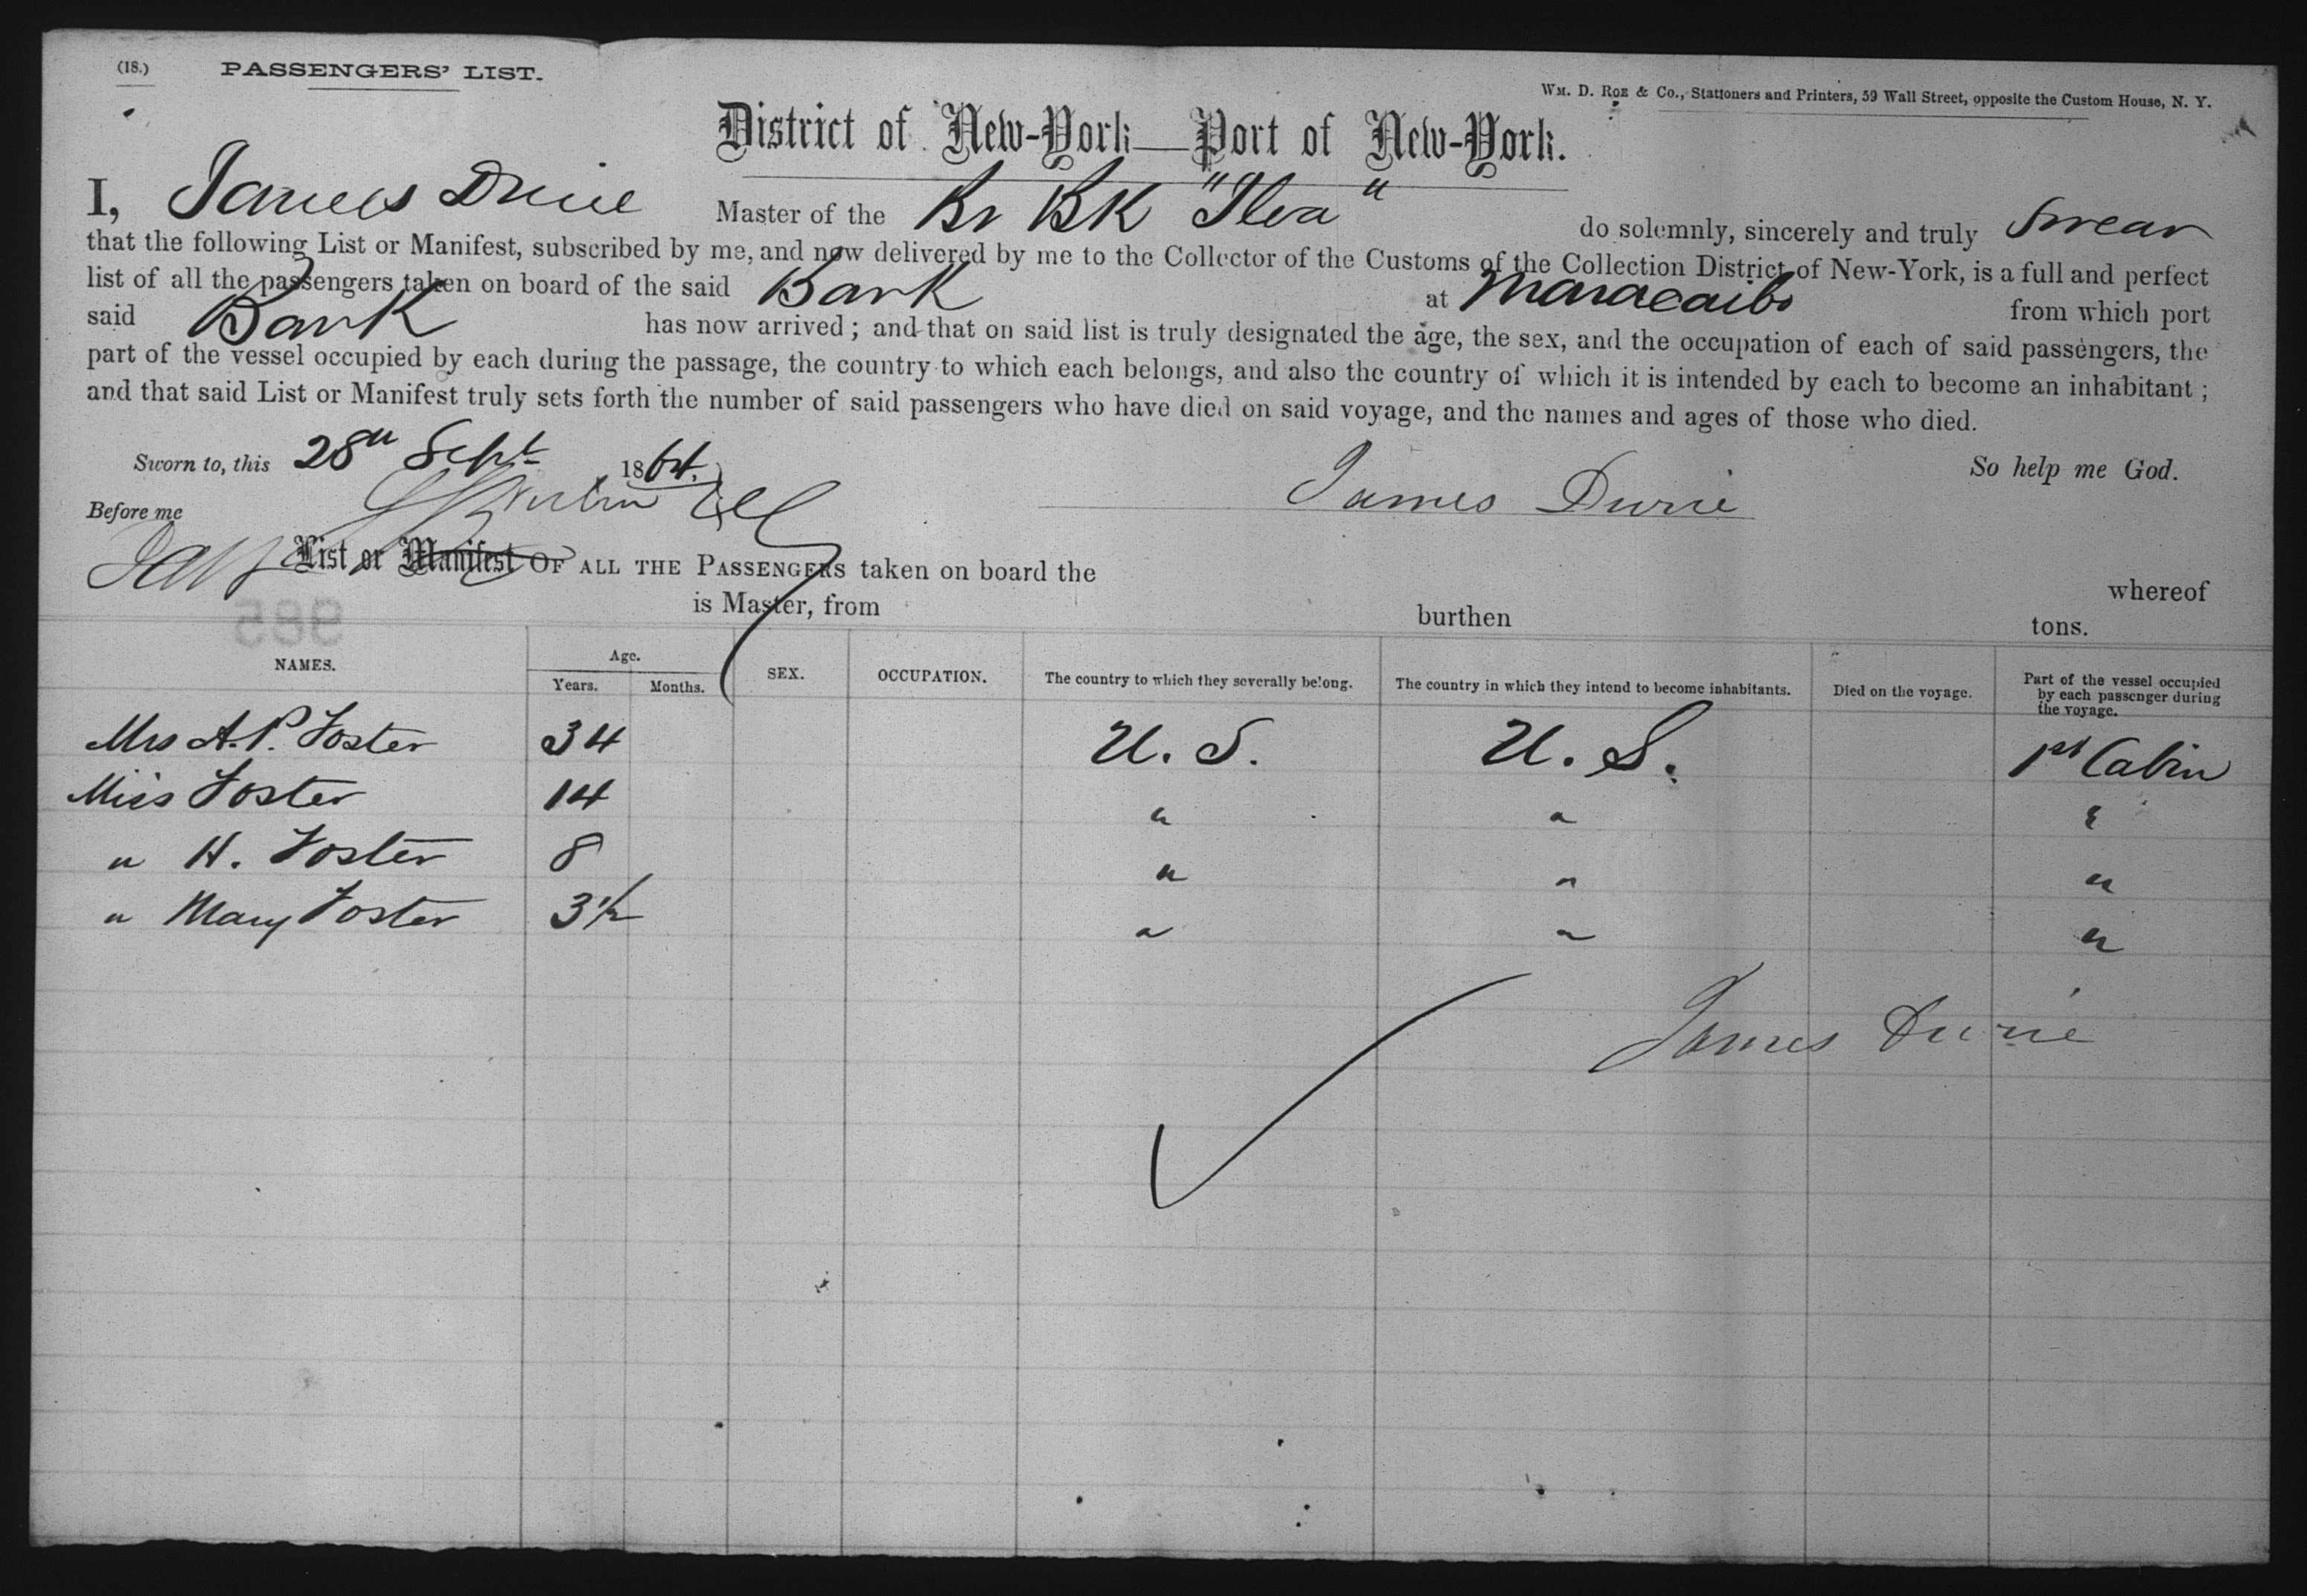 (18.) PASSENGERS' LIST.
Wm. D. Roe & Co., Stationers and Printers, 59 Wall Street, opposite the Custom House, N. Y.
District of New-York—Port of New-York.
I, James Durie Master of the Br Bk "Ilva" do solemnly, sincerely and truly Swear
that the following List or Manifest, subscribed by me, and now delivered by me to the Collector of the Customs of the Collection District of New-York, is a full and perfect
list of all the passengers taken on board of the said Bark at Maracaibo from which port
said Bark has now arrived; and that on said list is truly designated the age, the sex, and the occupation of each of said passengers, the
part of the vessel occupied by each during the passage, the country to which each belongs, and also the country of which it is intended by each to become an inhabitant;
and that said List or Manifest truly sets forth the number of said passengers who have died on said voyage, and the names and ages of those who died.
Sworn to, this 28th Sept 1864. So help me God.
Before me James Durie
List or Manifest OF ALL THE PASSENGERS taken on board the whereof
is Master, from burthen tons.
985
NAMES. Age. Years. Months. SEX. OCCUPATION. The country to which they severally belong. The country in which they intend to become inhabitants. Died on the voyage. Part of the vessel occupied by each passenger during the voyage.
Mrs A. P. Foster 34 U. S. U. S. 1st Cabin
Miss Foster 14 " " "
" H. Foster 8 " " "
" Mary Foster 3 1/2 " " "
James Durie